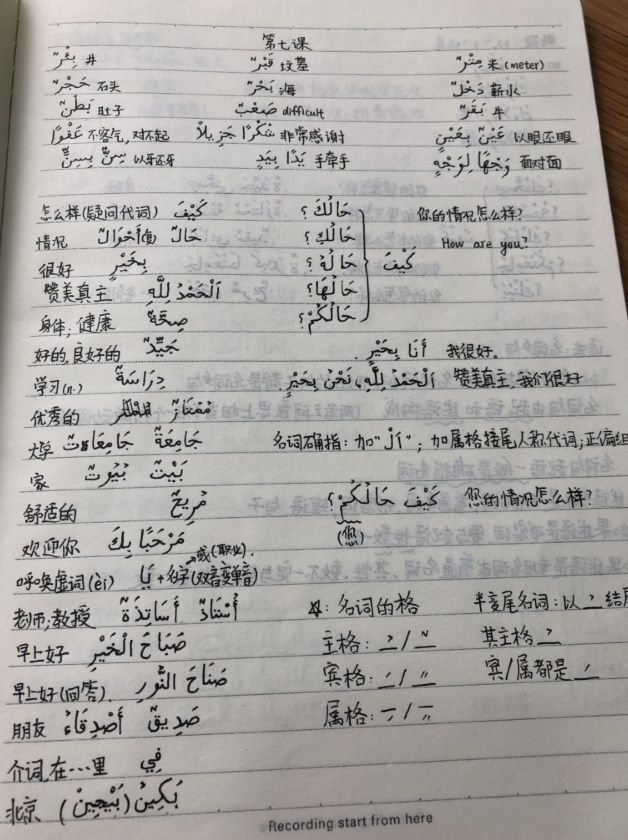 第七课
بِئْرٌ 井 قَبْرٌ 坟墓 مِتْرٌ 米 (meter)
حَجْرٌ 石头 بَحْرٌ 海 دَخْلٌ 薪水
بَطْنٌ 肚子 صَعْبٌ difficult بَقَرٌ 牛
عَفْوًا 不客气, 对不起 شُكْرًا جَزِيلًا 非常感谢 عَيْنٌ بِعَيْنٍ 以眼还眼
سِنٌّ بِسِنٍّ 以牙还牙 يَدًا بِيَدٍ 手牵手 وَجْهًا لِوَجْهٍ 面对面
怎么样(疑问代词) كَيْفَ حَالُكَ؟ 你的情况怎么样?
情况 حَالٌ (复) أَحْوَالٌ حَالُكِ؟ How are you?
很好 بِخَيْرٍ حَالُهُ؟ كَيْفَ
赞美真主 اَلْحَمْدُ لِلَّهِ حَالُهَا؟
身体, 健康 صِحَّةٌ حَالُكُمْ؟
好的, 良好的 جَيِّدٌ أَنَا بِخَيْرٍ. 我很好.
学习(n.) دِرَاسَةٌ اَلْحَمْدُ لِلَّهِ، نَحْنُ بِخَيْرٍ 赞美真主, 我们很好
优秀的 مُمْتَازٌ
大学 جَامِعَةٌ جَامِعَاتٌ 名词确指: 加"اَلْ"; 加属格接尾人称代词; 正偏组
家 بَيْتٌ بُيُوتٌ
舒适的 مُرِيحٌ كَيْفَ حَالُكُمْ؟ 您的情况怎么样?
欢迎你 مَرْحَبًا بِكَ (您)
呼唤虚词(èi) يَا +名字(双音变单音) 或(职业).
老师, 教授 أُسْتَاذٌ أَسَاتِذَةٌ ☆: 名词的格 半变尾名词: 以 ـُ 结尾
早上好 صَبَاحَ الْخَيْرِ 主格: ـُ / ـٌ 其主格 ـُ
早上好(回答). صَبَاحَ النُّورِ 宾格: ـَ / ـً 宾/属都是 ـَ
朋友 صَدِيقٌ أَصْدِقَاءُ 属格: ـِ / ـٍ
介词, 在…里 فِي
北京 بَكِينُ (بَيْجِينْ)
Recording start from here